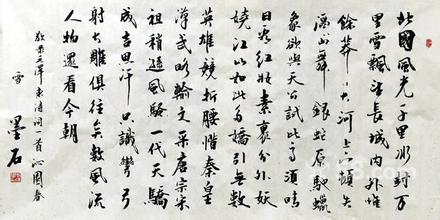 北國風光千里冰封万
里雪飄望長城内外惟
餘莽々大河上下頓失
滔々山舞銀蛇原馳蠟
象欲與天公試比高須晴
日看紅妝素裹分外妖
嬈江山如此多嬌引無數
英雄競折腰惜秦皇
漢武略輸文采唐宗宋
祖稍遜風騷一代天驕
成吉思汗只識彎弓
射大雕俱往矣數風流
人物還看今朝
敬录毛澤東詩詞一首沁園春
雪 墨石